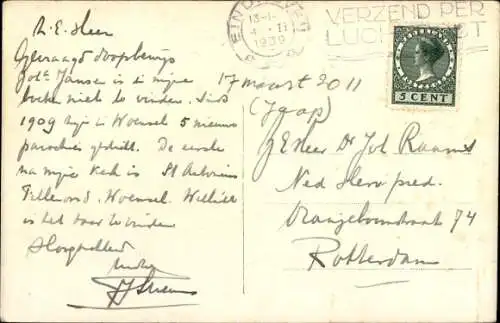 EINDHOVEN
13-1
1939
VERZEND PER
LUCHTPOST
5 CENT
W.E. Heer
Gevraagd doopbewijs
Joh. Jansen is in mijne
boeken niet te vinden. Sinds
1909 zijn in Woensel 5 nieuwe
parochies gesticht. De eerste
na mijne kerk is St Antonius
Woensel. Wellicht
is het daar te vinden
Hoogachtend
17 maart 2011
(Jaap)
Heer Dr Joh
Ned Herv pred.
Oranjeboomstraat 74
Rotterdam